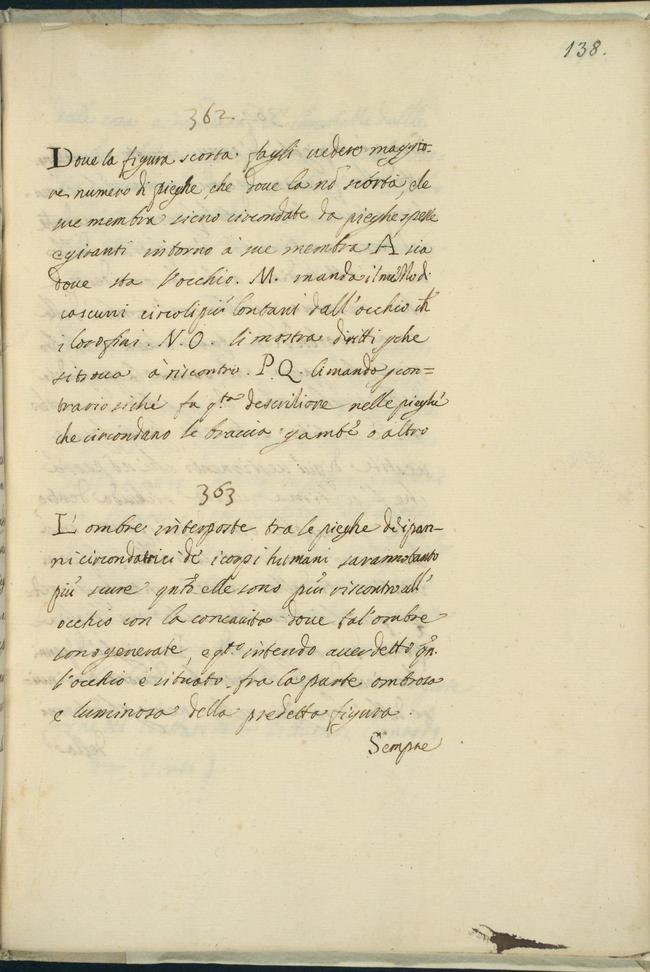 138.
362
Doue la figura scorta fagli vedere maggio-
re numero di pieghe, che doue la nõ scorta, e le
sue membra sieno circondate da pieghe spesse
e giranti intorno à sue membra A sia
doue sta l'occhio. M. manda il
ciascuni circoli più lontani dall'occhio
i loro fini. N.O. li mostra diritti pche
si troua à riscontro. P.Q. li manda p con=
trario sichè fa qsta nelle pieghe
che circondano le braccia gambe o altro
363
L'ombre interposte tra le pieghe de i pan-
ni circondatrici de i corpi humani saranno tanto
più scure qnto elle sono più riscontro all'
occhio con la concauità doue tal'ombre
sono generate, e qto intendo auer detto qn
l'occhio è situato fra la parte ombrosa
e luminosa della predetta figura.
Sempre